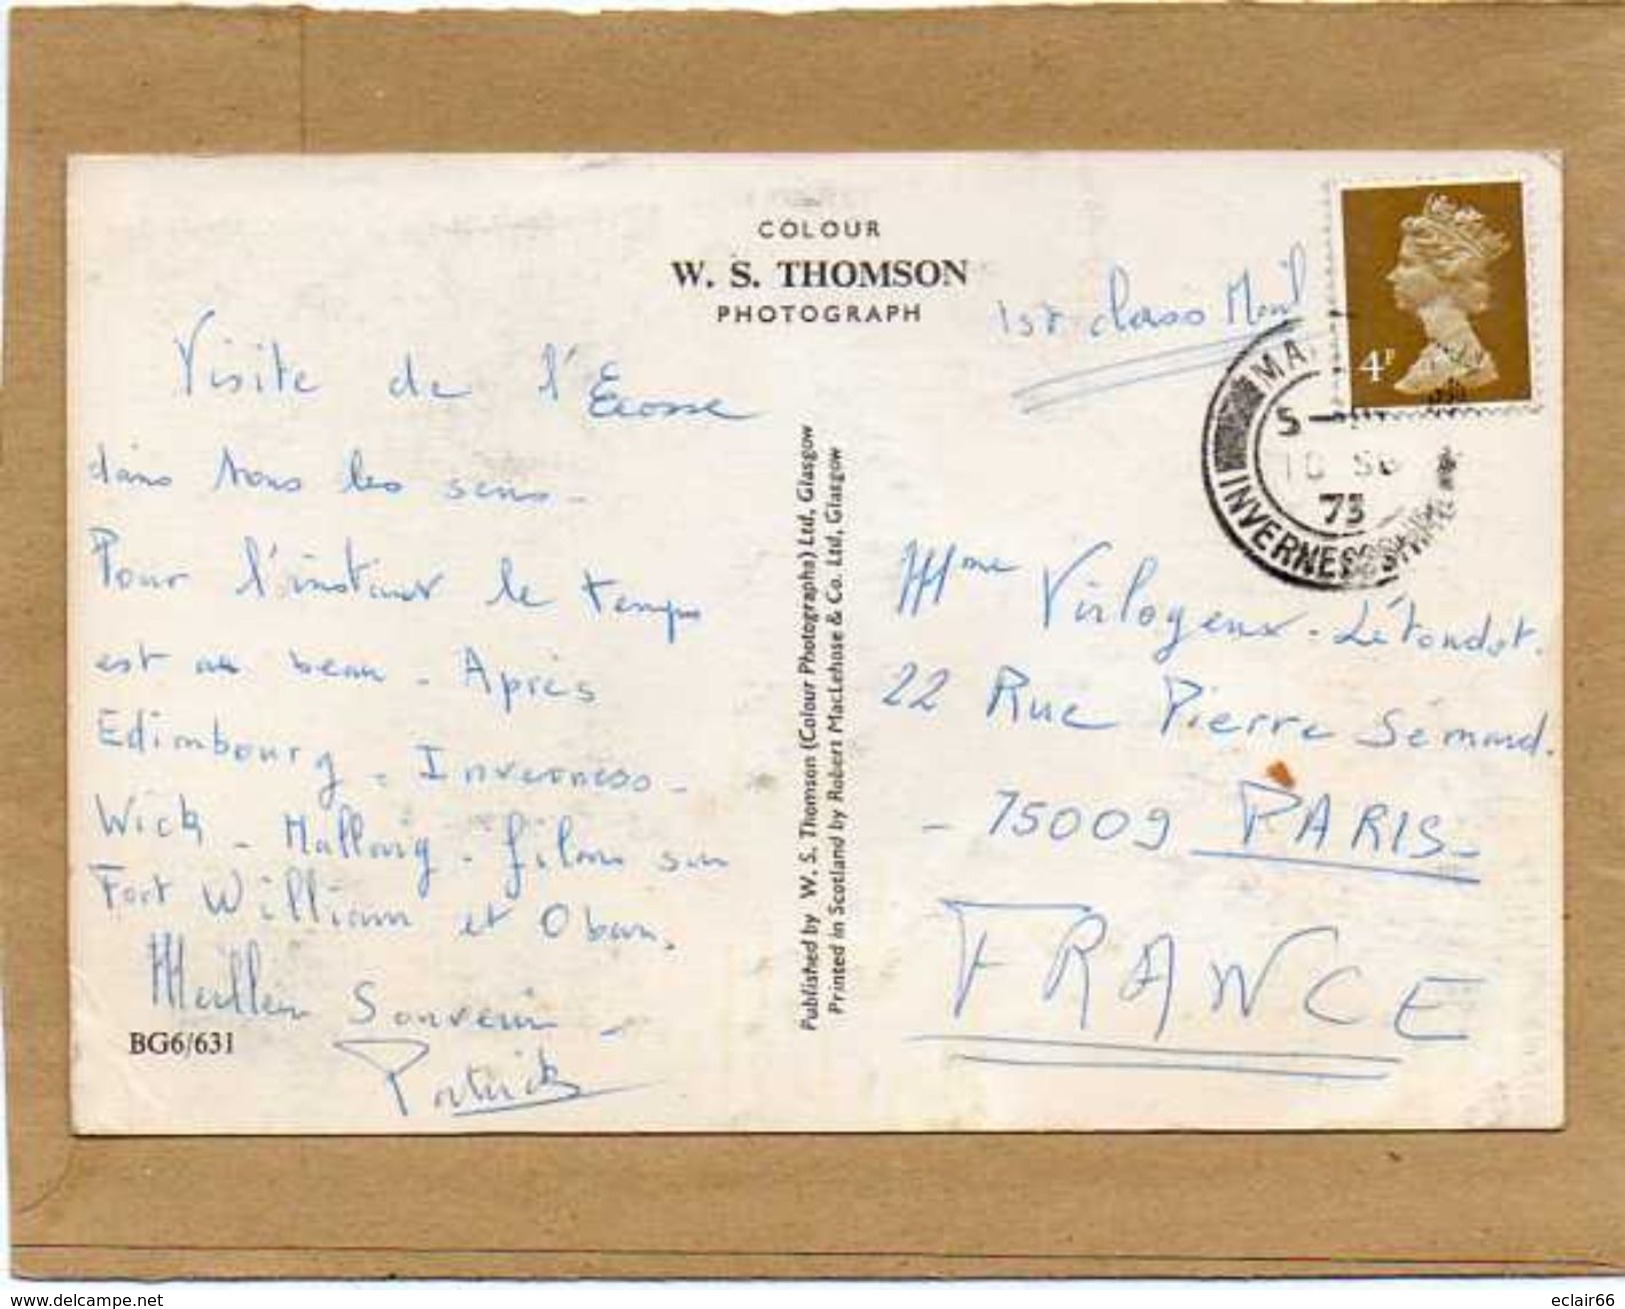 COLOUR
W. S. THOMSON
PHOTOGRAPH
1st class Mail
4P
MA
5
10 SE
73
INVERNESS-SHIRE
Visite de l'Ecosse
dans tous les sens -
Pour l'instant le temps
est au beau - Après
Edimbourg - Inverness -
Wick - Mallaig - filons sur
Fort William et Oban.
Meilleur Souvenir -
Patrick
BG6/631
Published by W. S. Thomson (Colour Photographs) Ltd, Glasgow
Printed in Scotland by Robert MacLehose & Co. Ltd, Glasgow
Mme Virlogeux - Létondot.
22 Rue Pierre Sémard.
- 75009 PARIS -
FRANCE
www.delcampe.net
eclair66